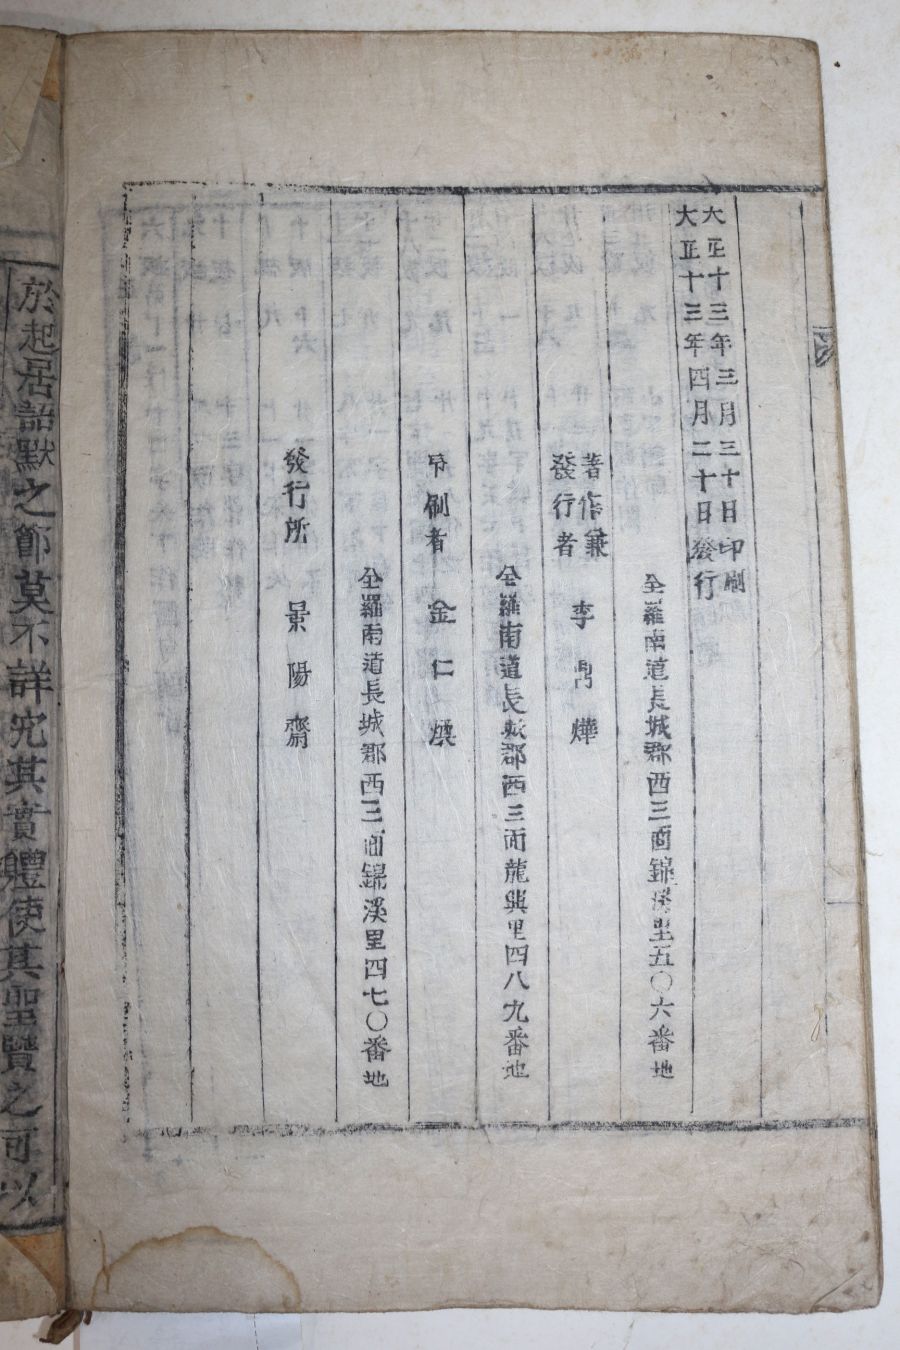 大正十三年三月三十日印刷
大正十三年四月二十日發行
全羅南道長城郡西三面錦溪里五〇六番地
著作兼
發行者
李鼎燁
全羅南道長城郡西三面龍興里四八九番地
印刷者 金仁煥
全羅南道長城郡西三面錦溪里四七〇番地
發行所 景陽齋
於起居語默之節莫不詳究其實體使其聖賢之可以